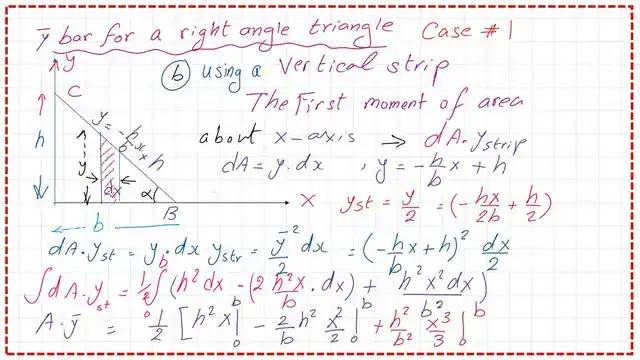 ȳ bar for a right angle triangle Case # 1
(b) using a Vertical strip
The First moment of area
about x-axis → dA. y strip
dA = y. dx , y = -h/b x + h
y
C
y = -h/b x + h
h
y
dx
α
B
b
x
y st = y/2 = (-hx/2b + h/2)
dA. y st = y. dx y str = y²/2 dx = (-h/b x + h)² dx/2
∫dA. y st = 1/2 ∫₀ᵇ (h² dx - (2 h² x/b . dx) + h² x² dx/b²)
A. ȳ = 1/2 [h² x|₀ᵇ - 2/b h² x²/2 |₀ᵇ + h²/b² x³/3 |₀ᵇ